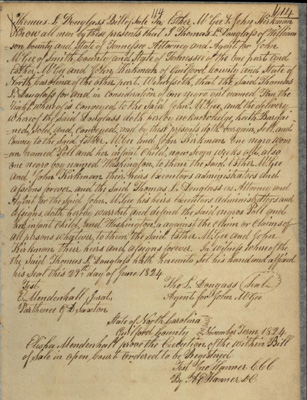 14 414
Thomas L Douglass Bill of Sale To Esther McGee & John Kirkman
Know all men by these presents that I Thomas L Douglass of William
son County and State of Tennessee Attorney and Agent for John
McGee of Smith County and State of Tennessee of the one part and
Esther McGee and John Kirkman of Guilford County and State of
North Carolina of the other part. Witnesseth, that the said Thomas
L Douglass for and in consideration of one negro
whereof is conveyed to the said John McGee, and the delivery
whereof the said Douglass doth hereby acknowledge, hath Bargai
ned, Sold, and Conveyed, and by these presents doth bargain, Sell, and
Convey to the said Esther McGee and John Kirkman
named Sall and her infant child,
one negro boy named Washington, to them the said Esther McGee
and John Kirkman, their heirs executors administrators and
assigns forever, and the said Thomas L Douglass as Attorney and
Agent for the said John McGee his heirs executors administrators and
assigns doth hereby warrant and defend the said negroes Sall and
her infant child, and Washington, against the claim or claims of
all persons whatever, to them the said Esther McGee and John
Kirkman their heirs and assigns forever. In witness whereof the
the said Thomas L Douglass hath hereunto set his hand and affixed
his seal this 22nd day of June 1824
Test Tho L Dougass (Seal)
E Mendenhall Jurat, Agent for John McGee
State of North Carolina
Guilford County November Term 1824
Elisha Mendenhall prove the Execution of the within Bill
of sale in open Court & ordered to be Registered
Test Jno Hanner CCC
By Hanner DC